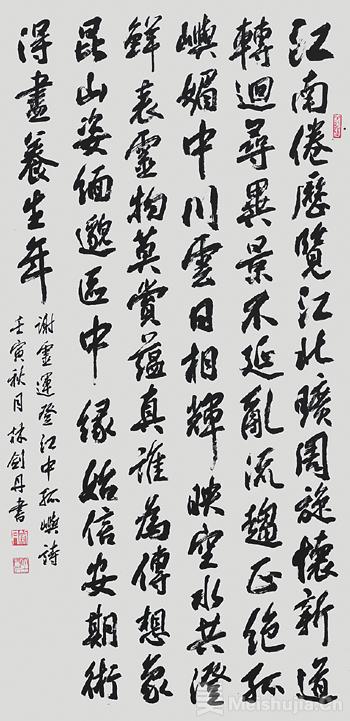 江南倦歷覽江北曠周旋懷新道
轉迴尋異景不延亂流趨正絶孤
嶼媚中川雲日相輝映空水共澄
鮮表靈物莫賞蘊真誰為傳想象
昆山姿緬邈區中緣始信安期術
得盡養生年
謝靈運登江中孤嶼詩
壬寅秋月林劍丹書
Meishujia.cn